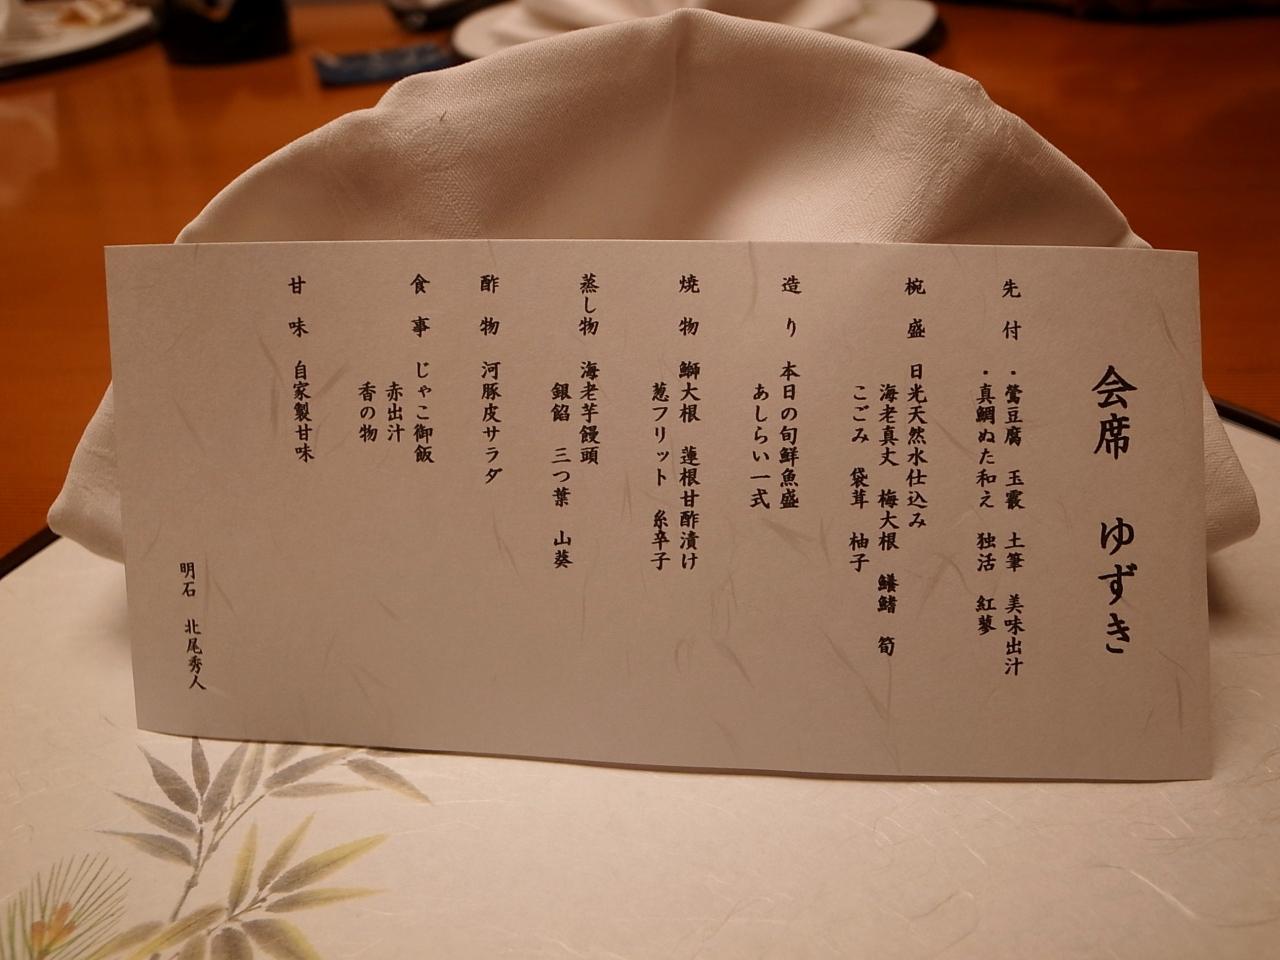 会席 ゆずき
先付 ・鶯豆腐 玉霰 土筆 美味出汁
・真鯛ぬた和え 独活 紅蓼
椀盛 日光天然水仕込み
海老真丈 梅大根 鱶鰭 筍
こごみ 袋茸 柚子
造り 本日の旬鮮魚盛
あしらい一式
焼物 鰤大根 蓮根甘酢漬け
葱フリット 糸辛子
蒸し物 海老芋饅頭
銀餡 三つ葉 山葵
酢物 河豚皮サラダ
食事 じゃこ御飯
赤出汁
香の物
甘味 自家製甘味
明石 北尾秀人